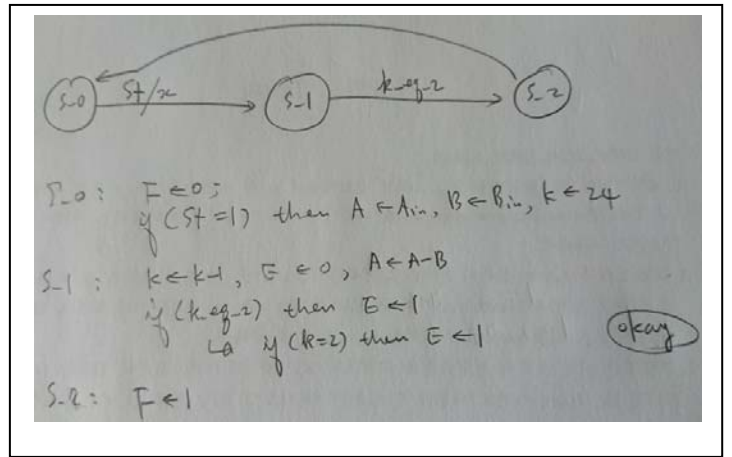 S_0 St/x S_1 k_eq_2 S_2
S_0 : F ← 0 ;
if (St = 1) then A ← Ain, B ← Bin, k ← 24
S_1 : k ← k-1, E ← 0, A ← A-B
if (k_eq_2) then E ← 1
if (k=2) then E ← 1
okay
S_2 : F ← 1